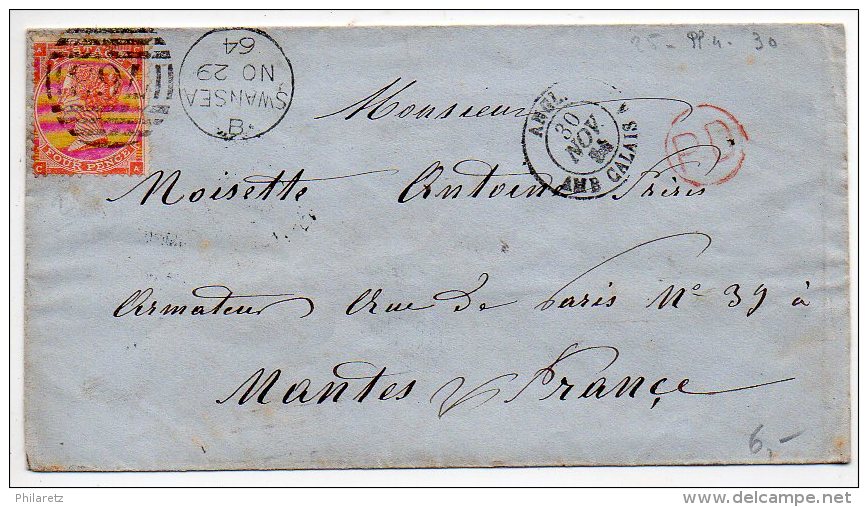 25- 30
POSTAGE
FOUR PENCE
A
C A
SWANSEA
NO 29
64
B
ANGL.
30
NOV
AMB CALAIS
PD
Monsieur
Moisette Antoine Frères
Armateur Rue de Paris No 39 à
Nantes France
6,-
Philaretz
www.delcampe.net